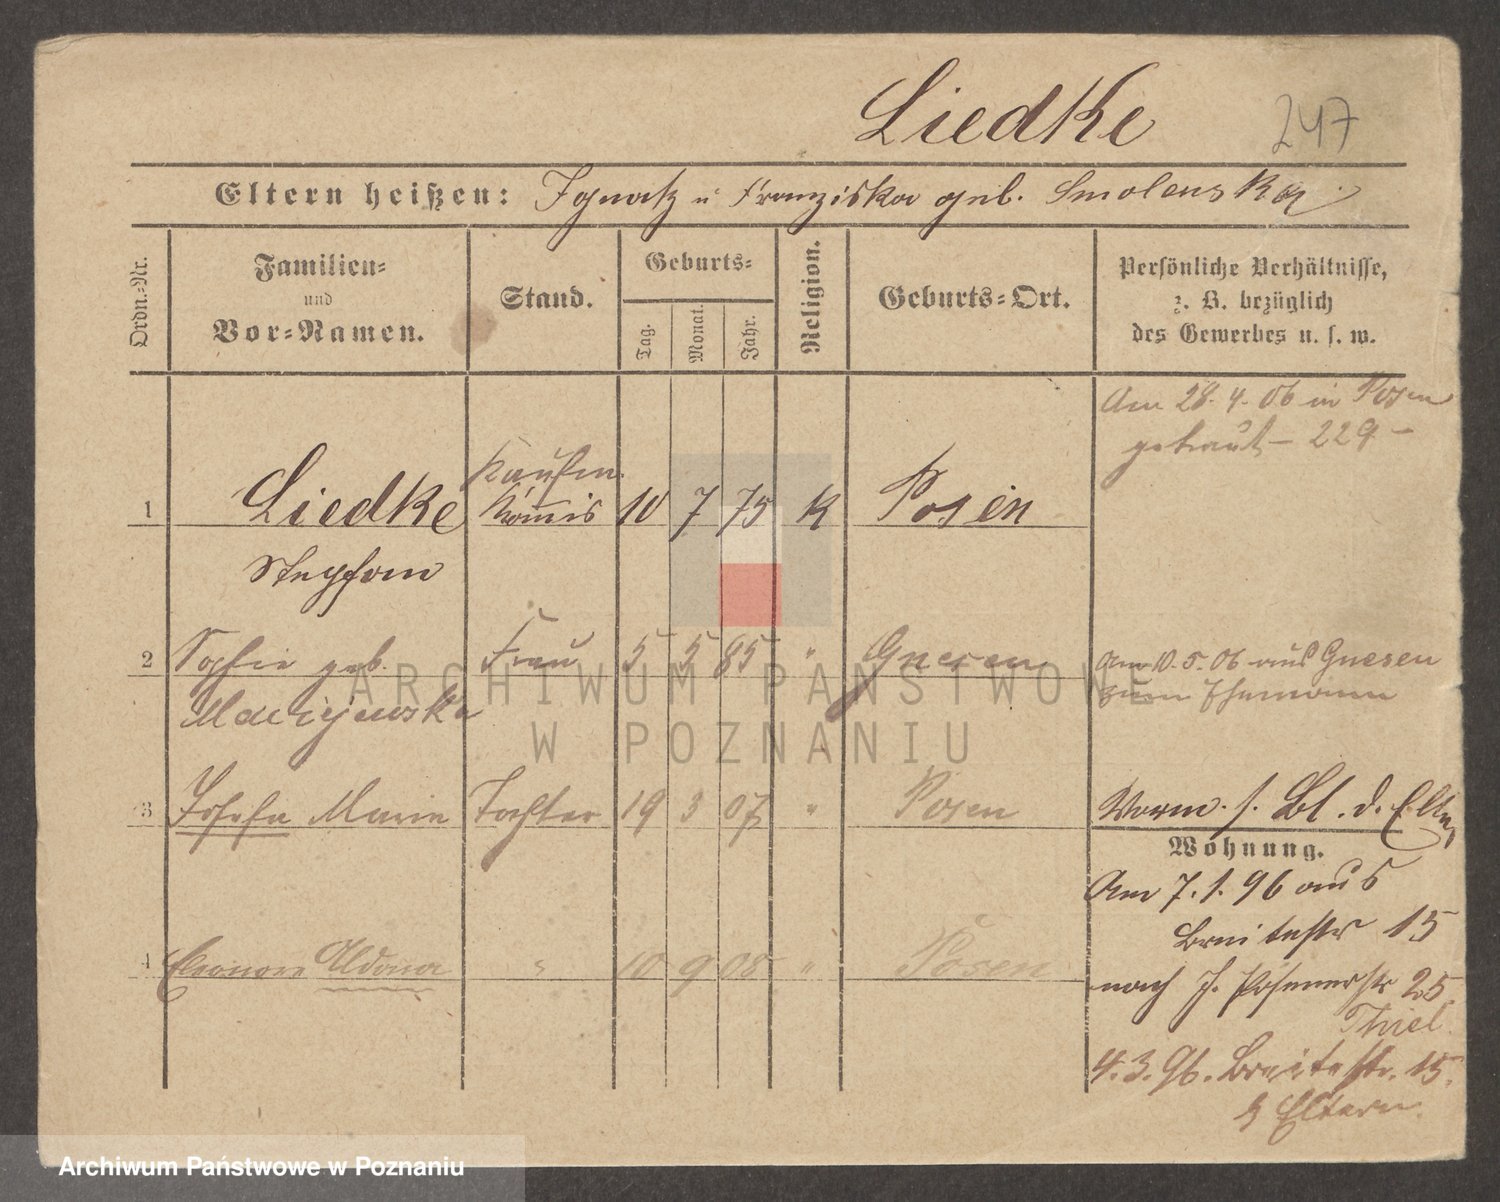 Liedke 247
Eltern heißen: Ignatz u Franziska geb. Smolenska
Ordn.-Nr.
Familien-
und
Vor-Namen.
Stand.
Geburts-
Tag.
Monat.
Jahr.
Religion.
Geburts-Ort.
Persönliche Verhältnisse,
z. B. bezüglich
des Gewerbes u. s. w.
Am 28. 4. 06 in Posen
getraut - 229 -
Kaufm.
1 Liedke Kommis 10 7 75 K Posen
Stephan
2 Sophie geb. Frau 5 5 85 " Gnesen Am 10. 5. 06 aus Gnesen
Maciejewska zum Ehemann
3 Josefa Marie Tochter 19 3 07 " Posen Vorm. s. Bl. d. Eltern
Wohnung.
Am 7. 1. 96 aus
Breitestr 15
4 Eleonore Aldona " 10 9 08 " Posen nach Posenerstr 25
Thiel
4. 3. 96. Breitestr. 15.
z Eltern.
ARCHIWUM PAŃSTWOWE
W POZNANIU
Archiwum Państwowe w Poznaniu